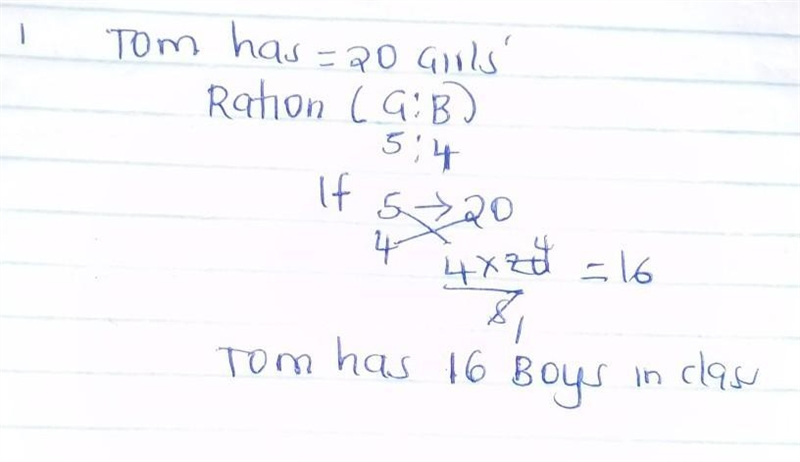 1 Tom has = 20 Girls'
Ration (G:B)
5:4
If 5 → 20
4
4 x 20 4 = 16
5 1
Tom has 16 Boys in class